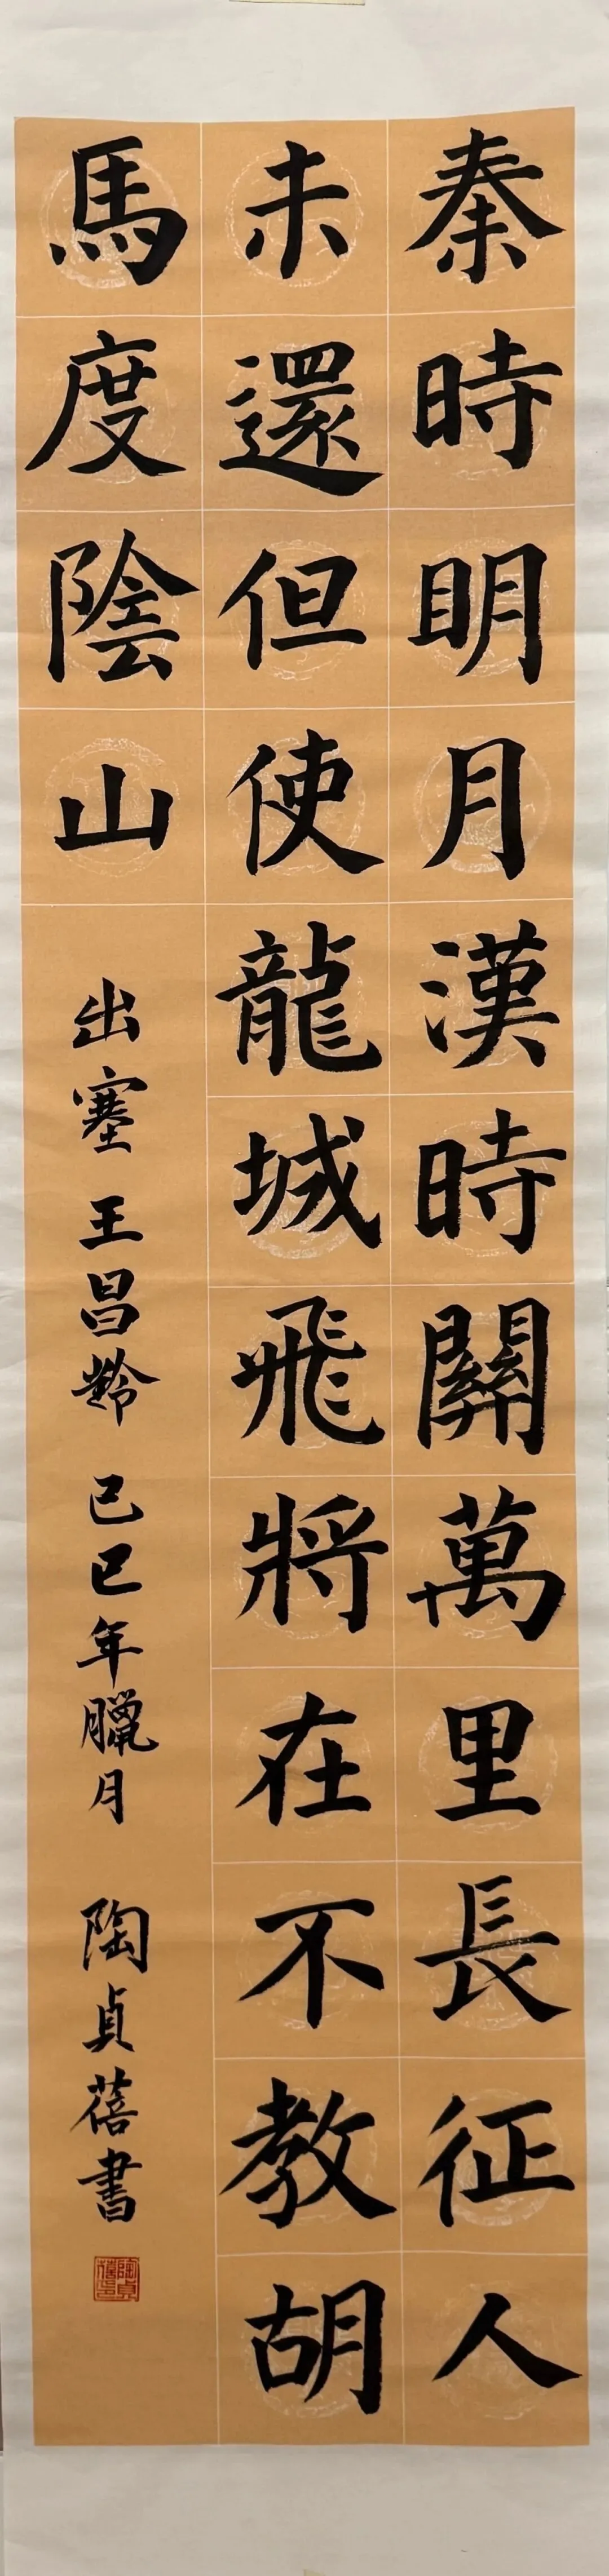 秦時明月漢時關萬里長征人
未還但使龍城飛將在不教胡
馬度陰山 出塞 王昌齡 己巳年臘月 陶貞蓓書
陶貞蓓印